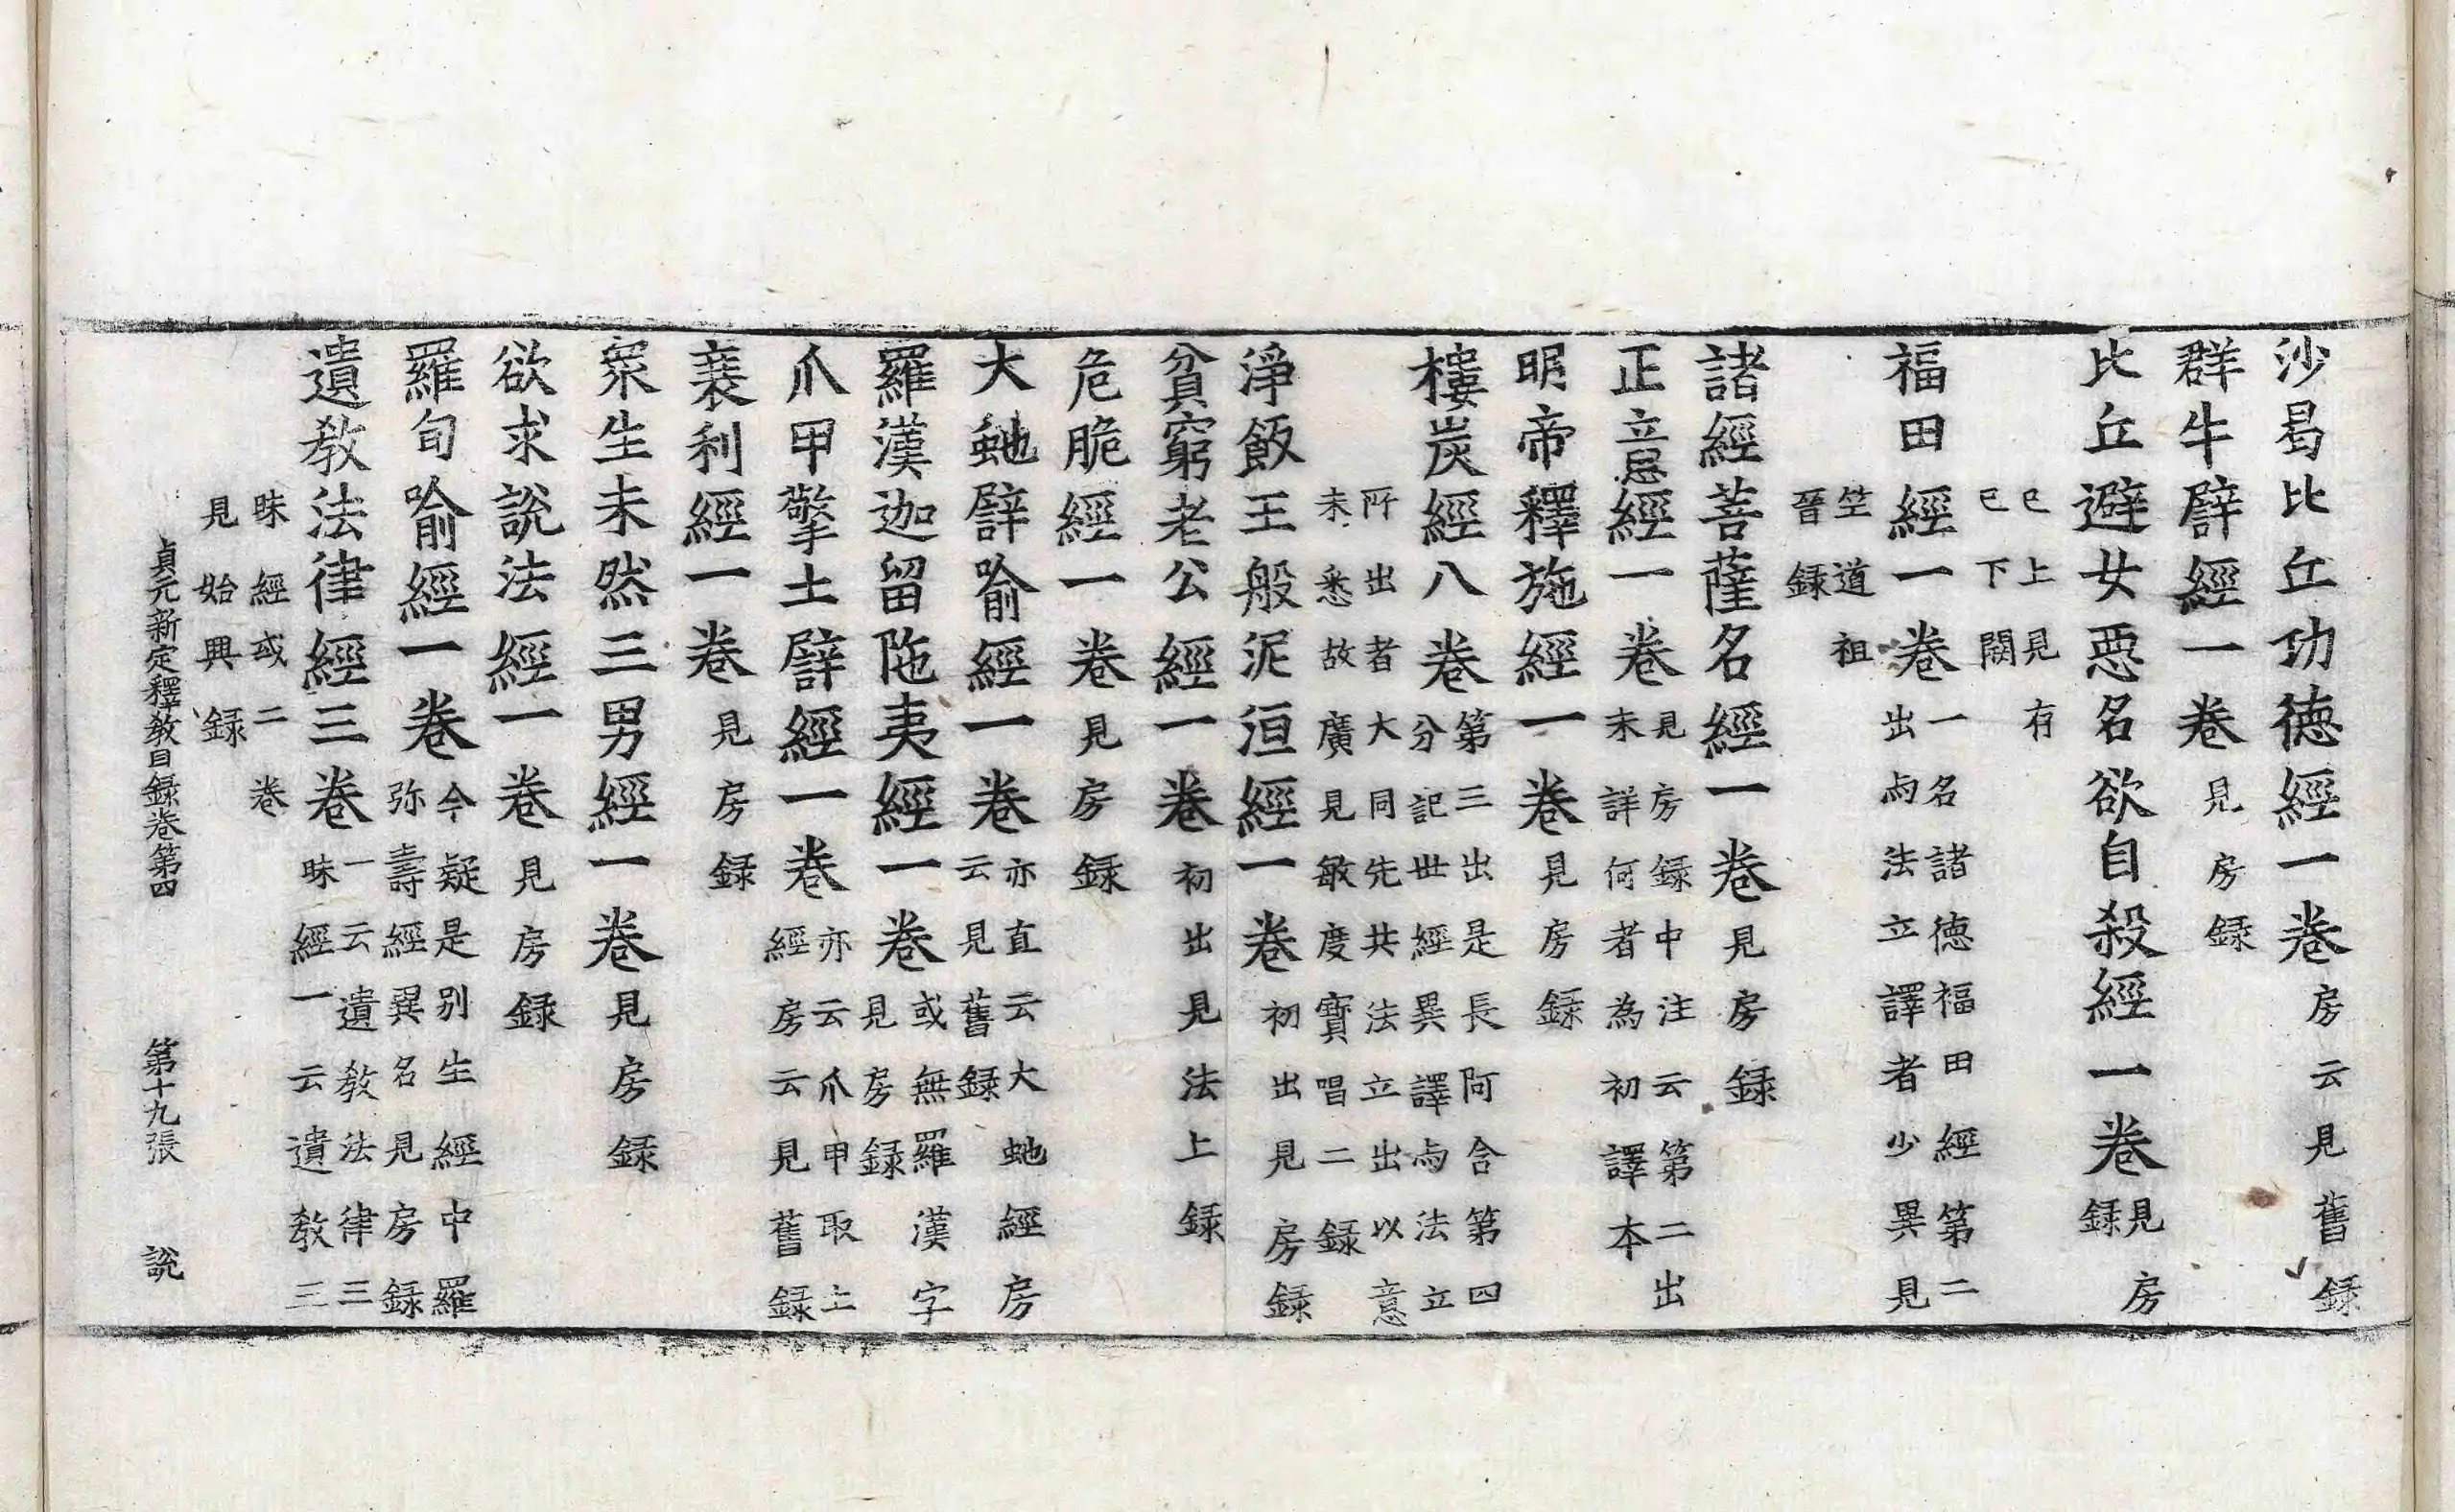 沙曷比丘功德經一卷房云見舊錄
群牛譬經一卷見房錄
比丘避女惡名欲自殺經一卷見房錄
已上見有
已下闕
福田經一卷一名諸德福田經第二出與法立譯者少異見
竺道祖
晉錄
諸經菩薩名經一卷見房錄
正立忌經一卷見房錄中注云第二出未詳何者為初譯本
明帝釋施經一卷見房錄
樓炭經八卷第三出是長阿含第四分記世經異譯與法立
所出者大同先共法立出以意
未悉故廣見敏度寶唱二錄
淨飯王般泥洹經一卷初出見房錄
貧窮老公經一卷初出見法上錄
危脆經一卷見房錄
大虵譬喻經一卷亦直云大虵經房云見舊錄
羅漢迦留陁夷經一卷或無羅漢字見房錄
爪甲擎土譬經一卷亦云爪甲取土經房云見舊錄
裘利經一卷見房錄
衆生未然三男經一卷見房錄
欲求說法經一卷見房錄
羅旬喻經一卷今疑是別生經中羅弥壽經異名見房錄
遺教法律經三卷一云遺教法律三昧經一云遺教三
昧經或二卷
見始興錄
貞元新定釋教目錄卷第四 第十九張 說